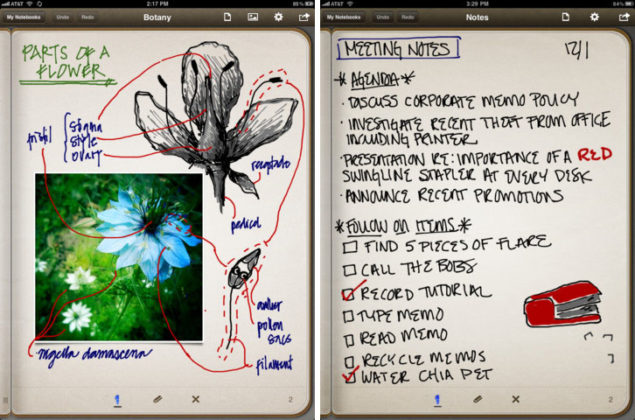 AT&T
2:17 PM
85%
My Notebooks
Undo
Redo
Botany
PARTS OF A
FLOWER
pistil
stigma
style
ovary
receptacle
pedicel
anther
pollen
sacs
filament
nigella damascena
2
AT&T
3:29 PM
84%
My Notebooks
Undo
Redo
Notes
MEETING NOTES
12/1
*AGENDA*
· DISCUSS CORPORATE MEMO POLICY
· INVESTIGATE RECENT THEFT FROM OFFICE
INCLUDING PRINTER
· PRESENTATION RE: IMPORTANCE OF A RED
SWINGLINE STAPLER AT EVERY DESK
· ANNOUNCE RECENT PROMOTIONS
*FOLLOW ON ITEMS*
FIND 5 PIECES OF FLARE
CALL THE BOBS
RECORD TUTORIAL
TYPE MEMO
READ MEMO
RECYCLE MEMOS
WATER CHIA PET
2